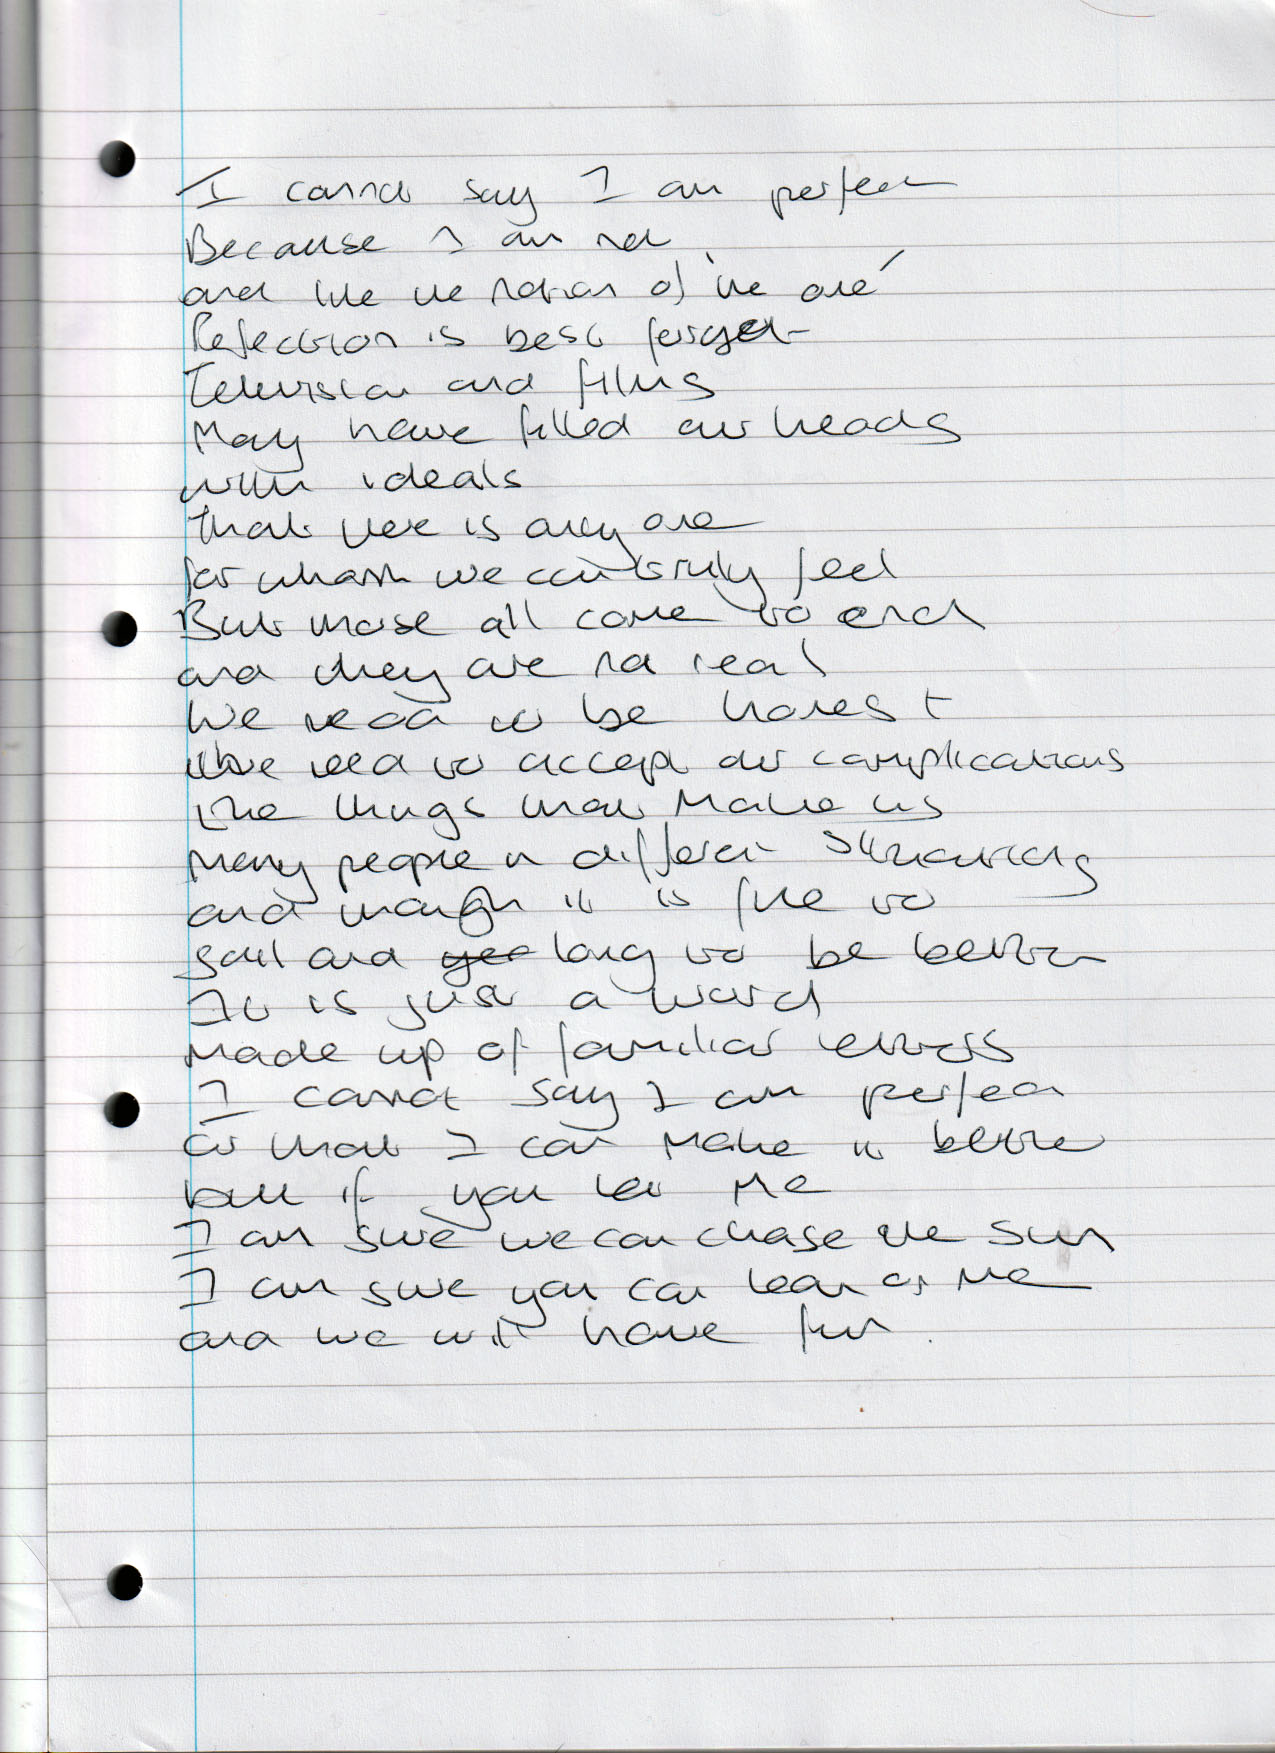 I cannot say I am perfect
Because I am not
and like the notion of 'the one'
Perfection is best forgot
Television and films
May have filled our heads
with ideals
That there is only one
for whom we can truly feel
But those all come to end
and they are not real
We need to be honest
We need to accept our complications
The things that make us
Many people in different situations
and though it is fine to
sail and long to be better
It is just a word
Made up of familiar letters
I cannot say I am perfect
or that I can make it better
but if you let me
I am sure we can chase the sun
I am sure you can lean on me
and we will have fun.